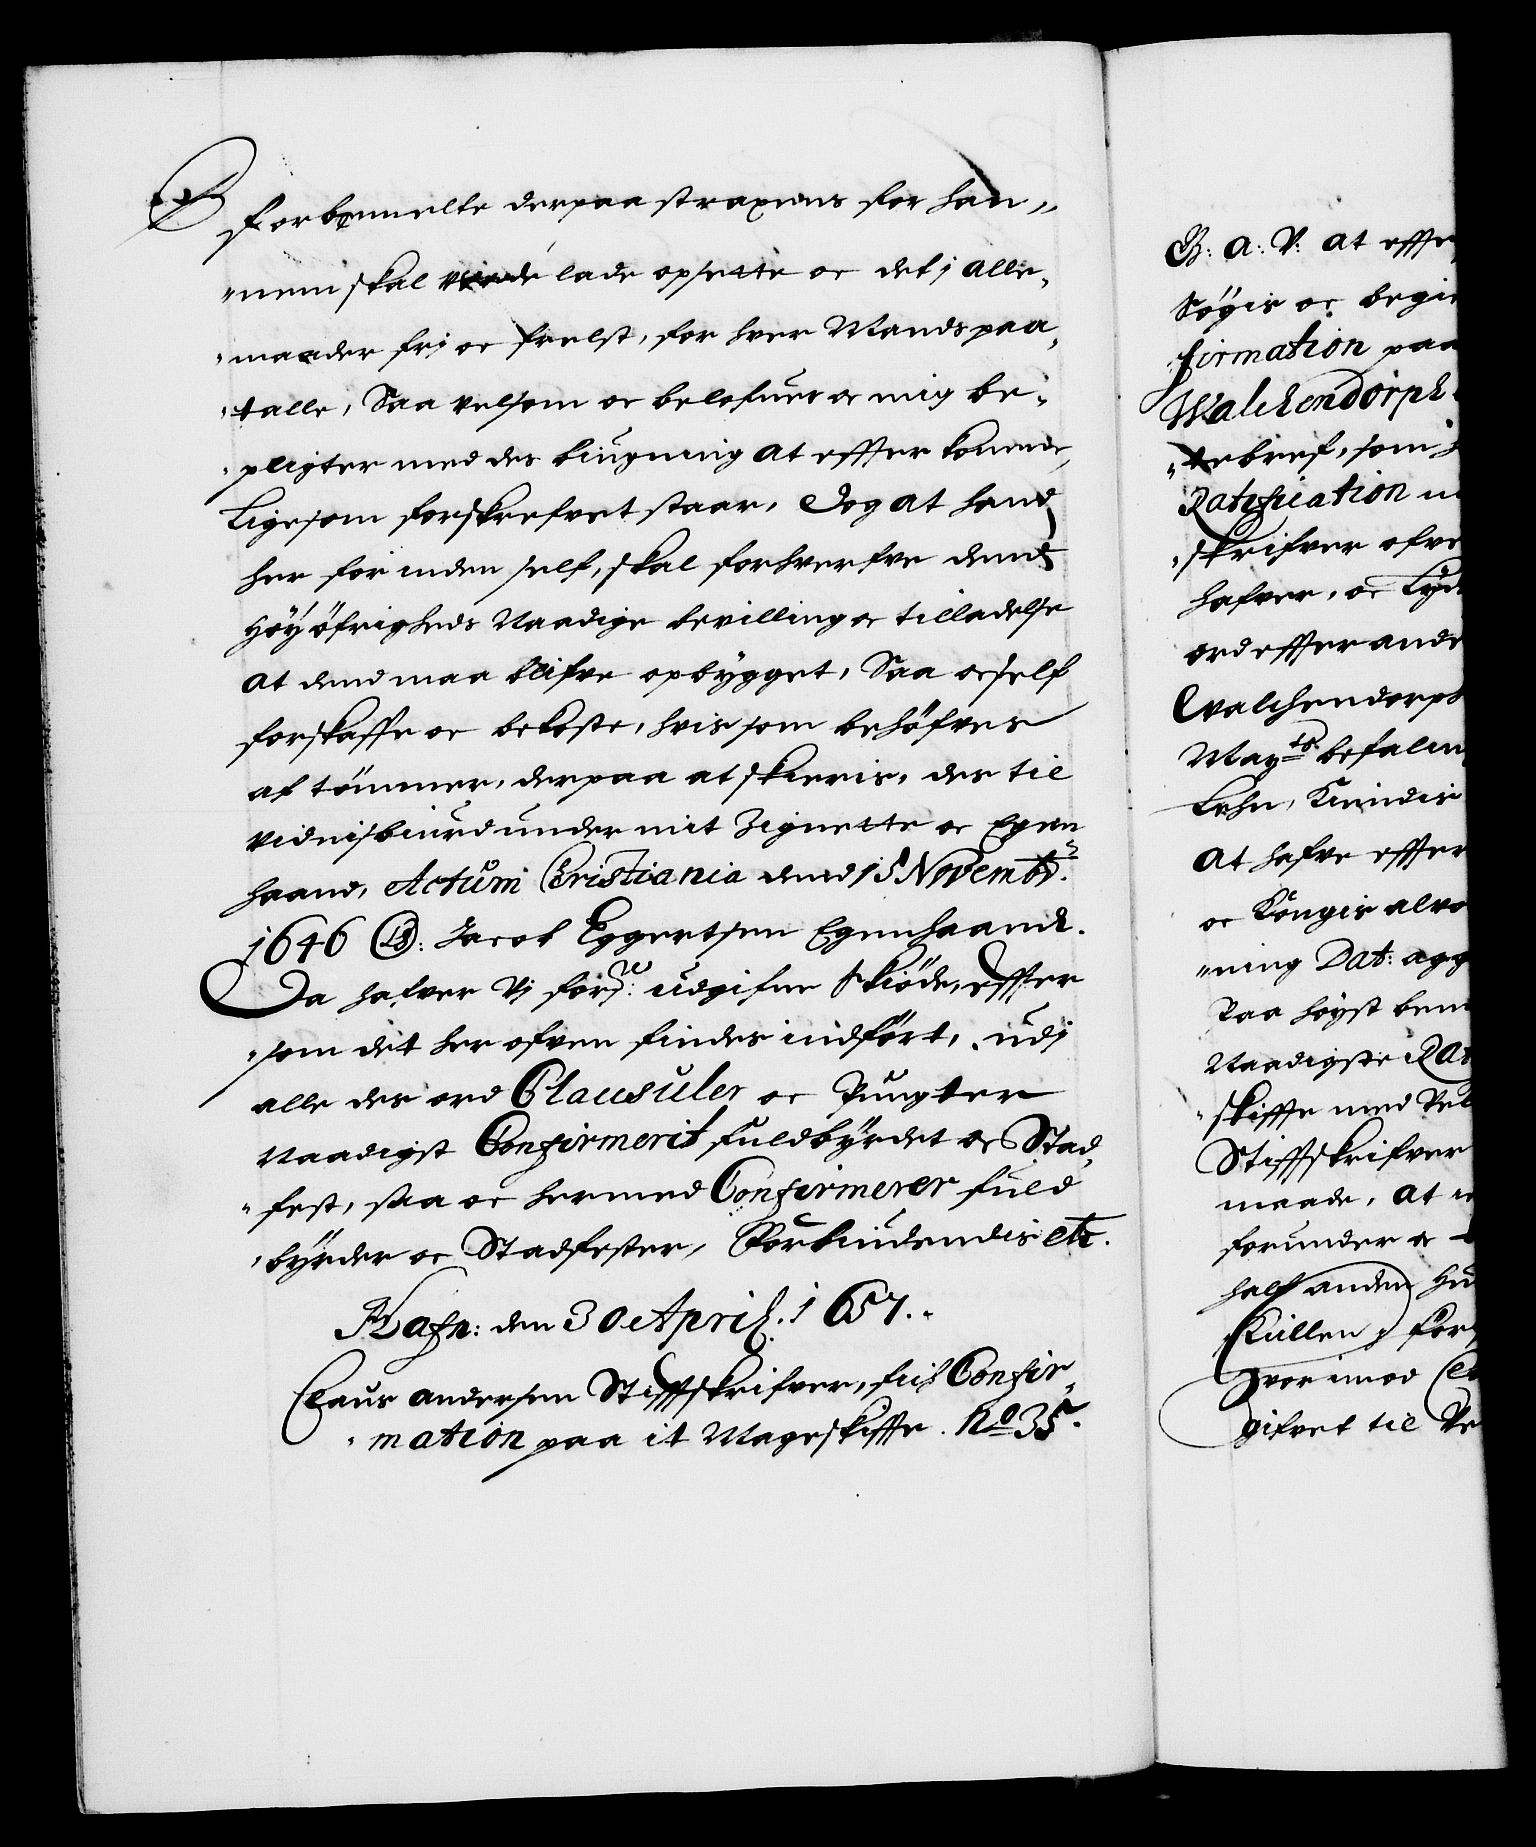 forbemelte derpaa straxens for han„
„nem skal lade opsette oc det j alle„
„maader frj oc frelst, for hver Mands paa„
„talle, Saa velsom oc belofuer oc mig be„
„pligter med des bugning at effter komme,
Ligesom forskrefvet staar, Dog at hand
her for inden self, skal forhverfve dend
Höÿ öfrigheds Naadige bevilling oc tilladelse
at dend maa blifve opbÿgget, Saa oc self
forskaffe oc bekoste, hvis som behöfves
af tömmer, derpaa at skieris, des til
vidnisbiurd under mit Zignette oc Egen
haand, Actum Cristiania dend 15 Novembr.
1646 LS: Jacob Eggertsen Egenhaand.
Da hafver Vj fors: udgifne skiöde, effter
„som det her ofven findes indfört, udj
alle des ord Clausuler oc Pungter
Naadigst Confirmerit fuldbÿrdet oc Stad„
„fest, saa oc hermed Confirmerer fuld
„bÿrder oc Stadfester, Forbiudendis etc.
Hafn: den 30 April. 1657.
Claus andersen Stifftskrifver, fich Confir„
„mation paa it Mageskiffte. No 35.
G: A: V: at effte
Söges oc begie
firmation paa
Walchendorph
„tebref, som
Ratification
„skrifver ofve
hafver, oc Lÿd
ord effter ande
Walchendorph
May ts befalin
Lehn, Kiendis
At hafve effter
oc Kongis alvo
„ning Dat: agg
Paa höyst bem
Naadigste Rat
„skiffte med Vel
Stifftskrifver
maade, at
forunder oc
half anden Hu
Kullen, fors
Hvorimod Cl
gifvet til Ve